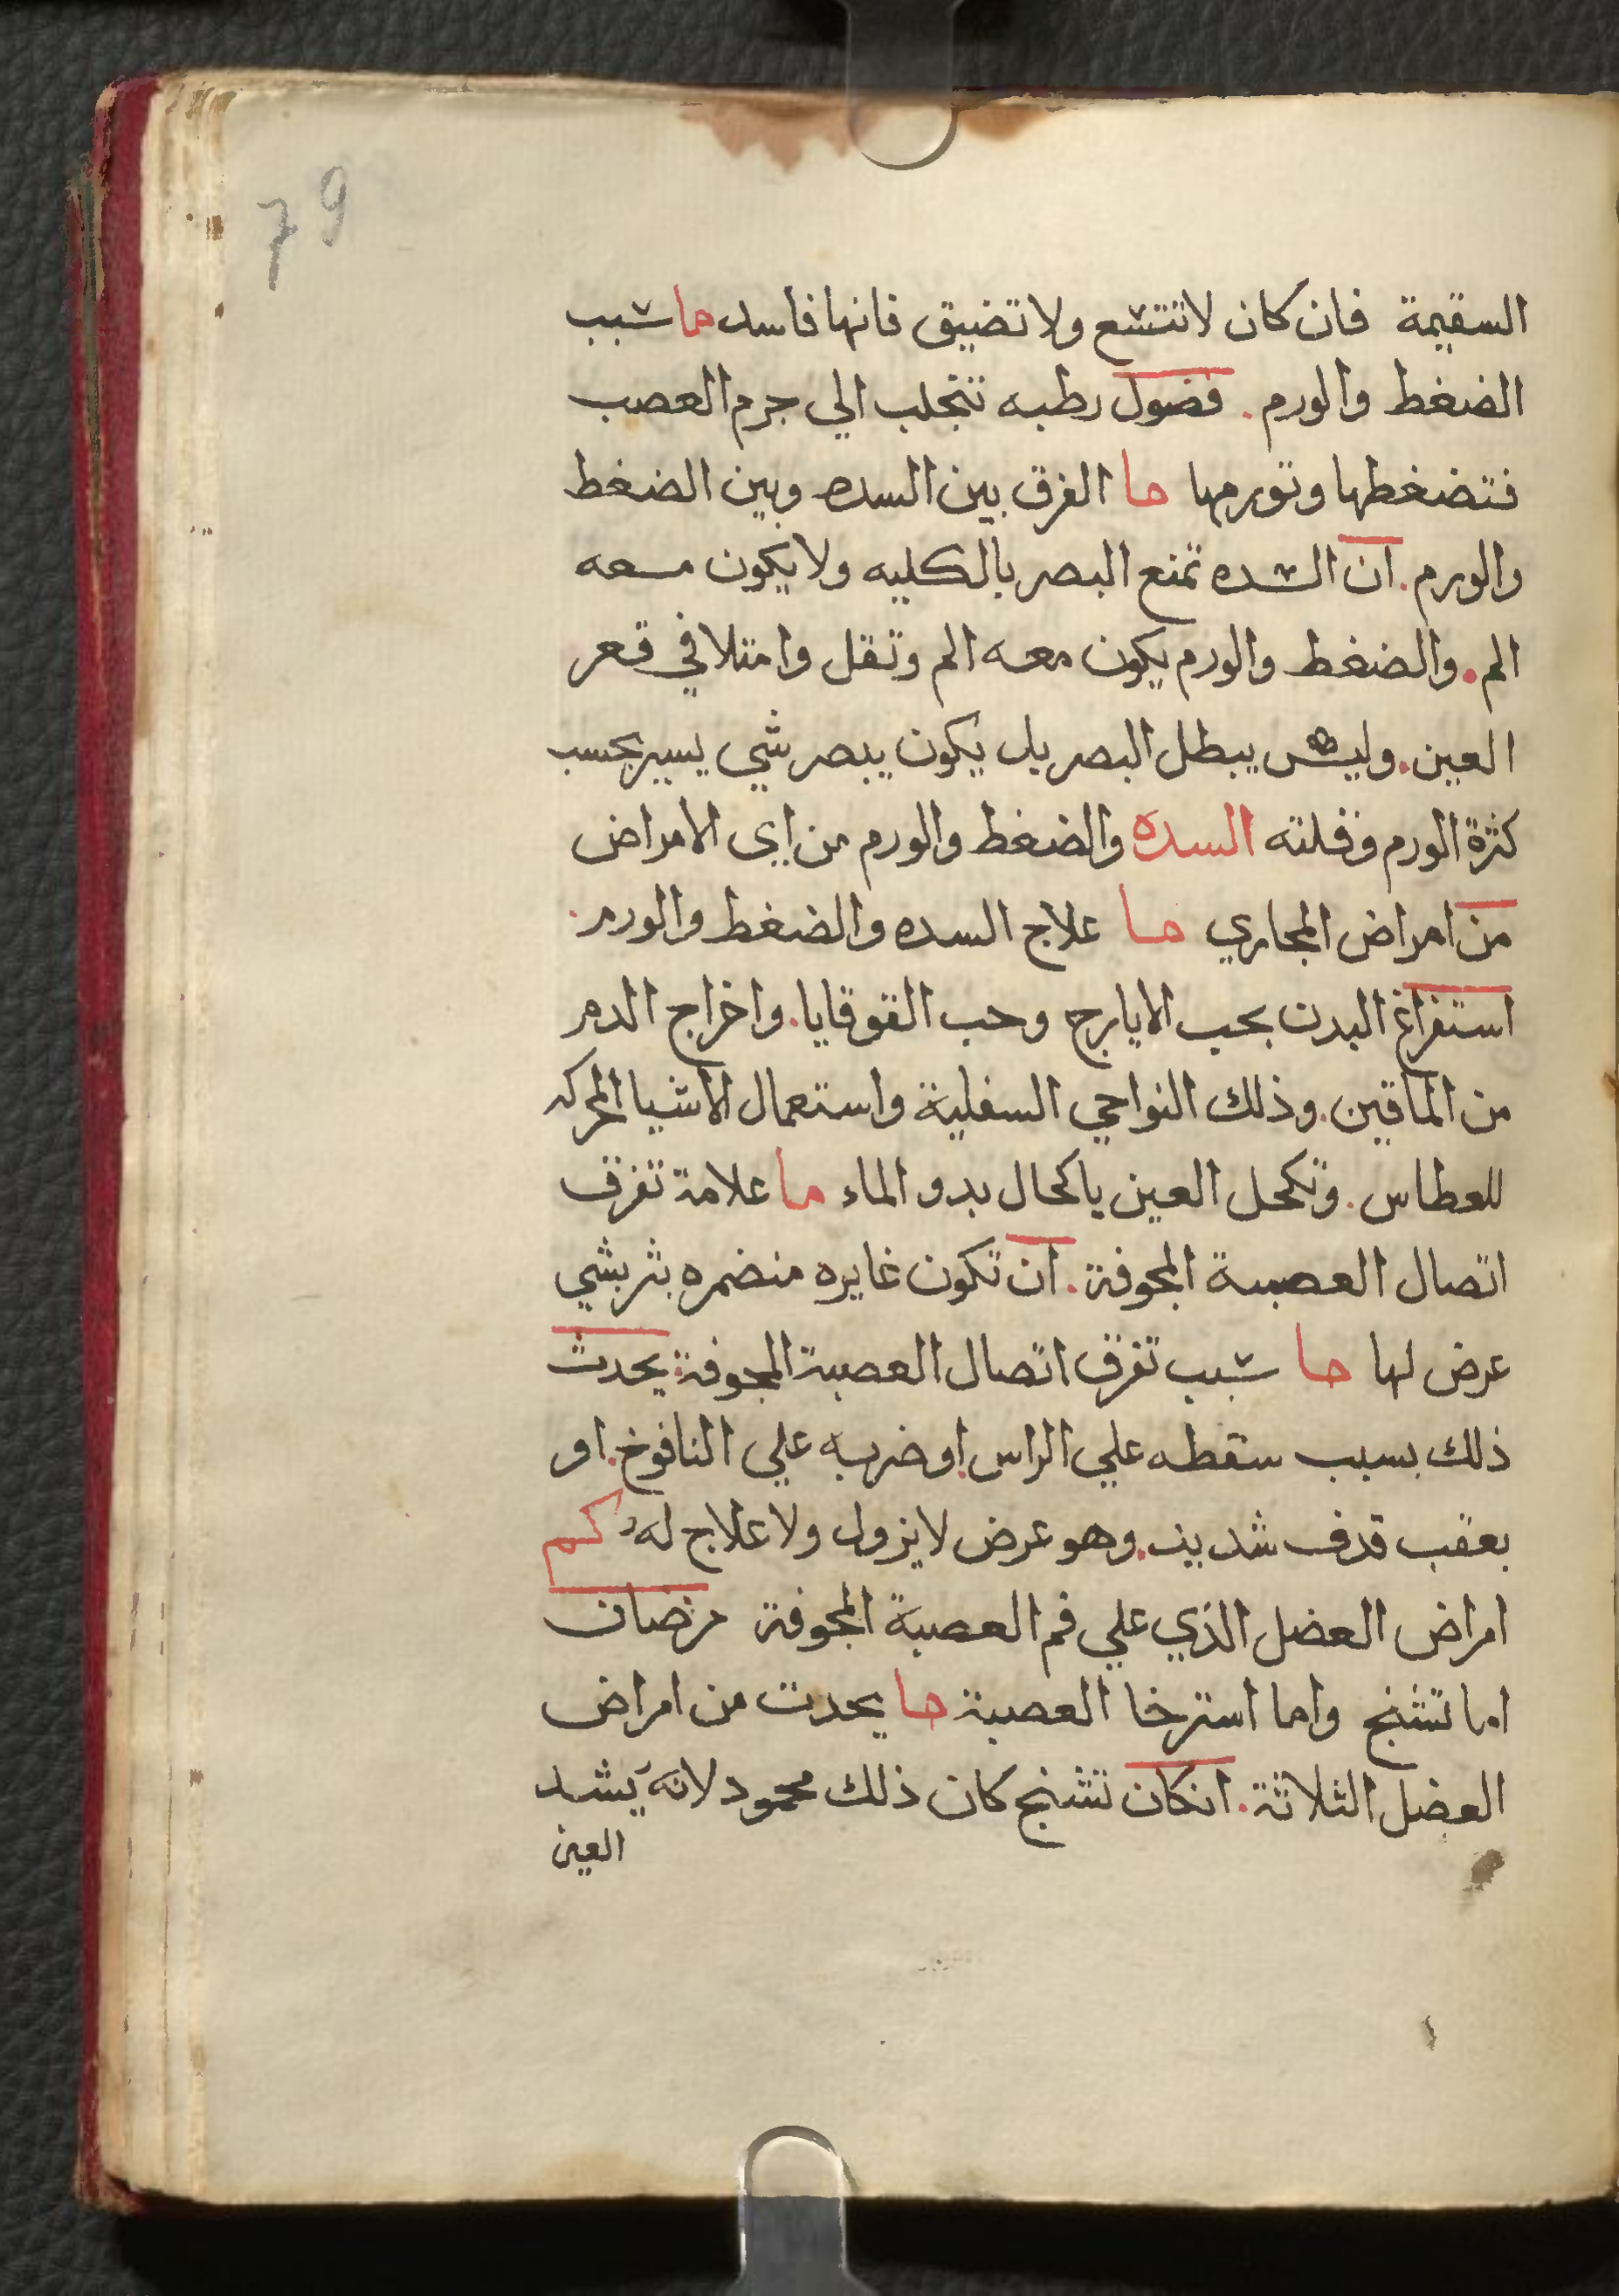 79
السقيمة فان كان لا تتسع ولا تضيق فانها فاسده ما سبب
الضغط والورم. فضول رطبه تتجلب الي جرم العصب
فتضغطها وتورمها ما الفرق بين السده وبين الضغط
والورم. ان السده تمنع البصر بالكليه ولا يكون معه
الم. والضغط والورم يكون معه الم وثقل وامتلا في قعر
العين. وليس يبطل البصر بل يكون يبصر شي يسير بحسب
كثرة الورم وقلته السده والضغط والورم من اي الامراض
من امراض المجاري ما علاج السده والضغط والورم.
استفراغ البدن بحب الايارج وحب القوقايا. واخراج الدم
من الماقين. وذلك النواحي السفلية واستعمال الاشيا المحركه
للعطاس. وتكحل العين باكحال بدو الماء ما علامة تفرق
اتصال العصبة المجوفة. ان تكون غايره منضمره بثر بشي
عرض لها ما سبب تفرق اتصال العصبة المجوفة: يحدث
ذلك بسبب سقطه علي الراس. او ضربه علي النافوخ. او
بعقب قدف شديد. وهو عرض لا يزول ولا علاج له كم
امراض العضل الذي علي فم العصبة المجوفة مرضان
اما تشنج واما استرخا العصبة ما يحدث من امراض
العضل الثلاثة. انكان تشنج كان ذلك محمود لانه يشد
العين